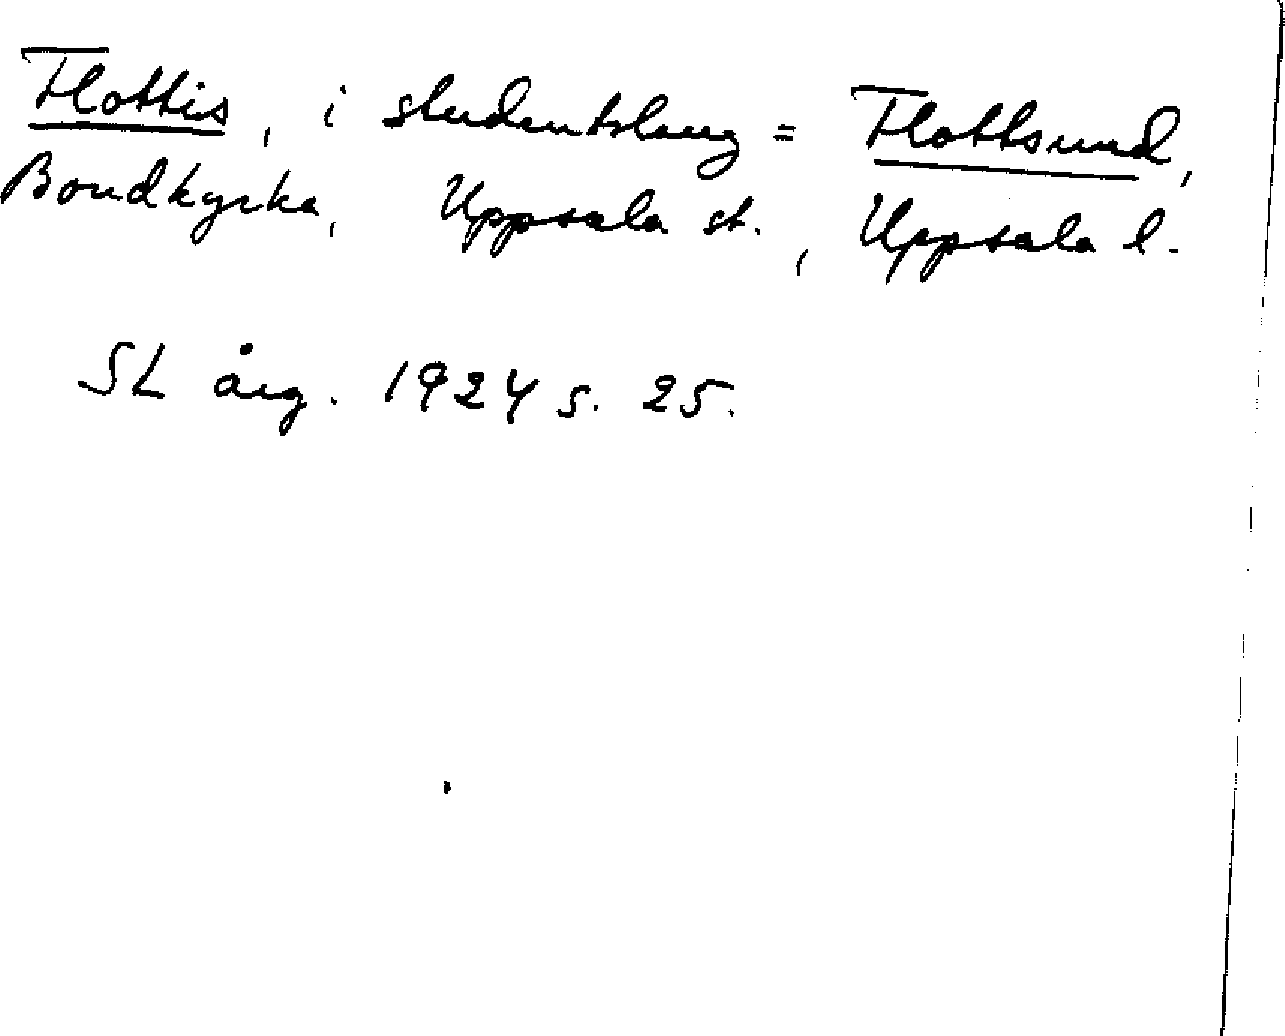 Flottis, i studentslang = Flottsund,
Bondkyrka, Uppsala st., Uppsala l.
SL årg. 1924 s. 25.